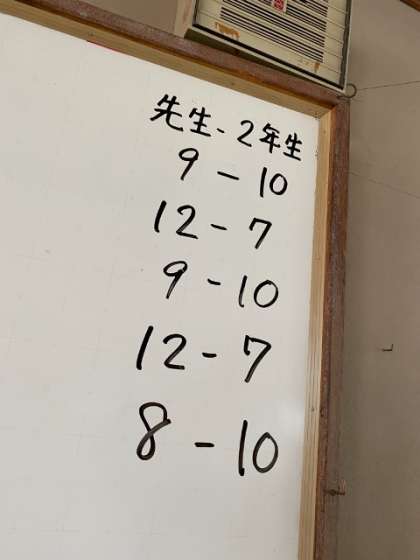 先生-2年生
9-10
12-7
9-10
12-7
8-10